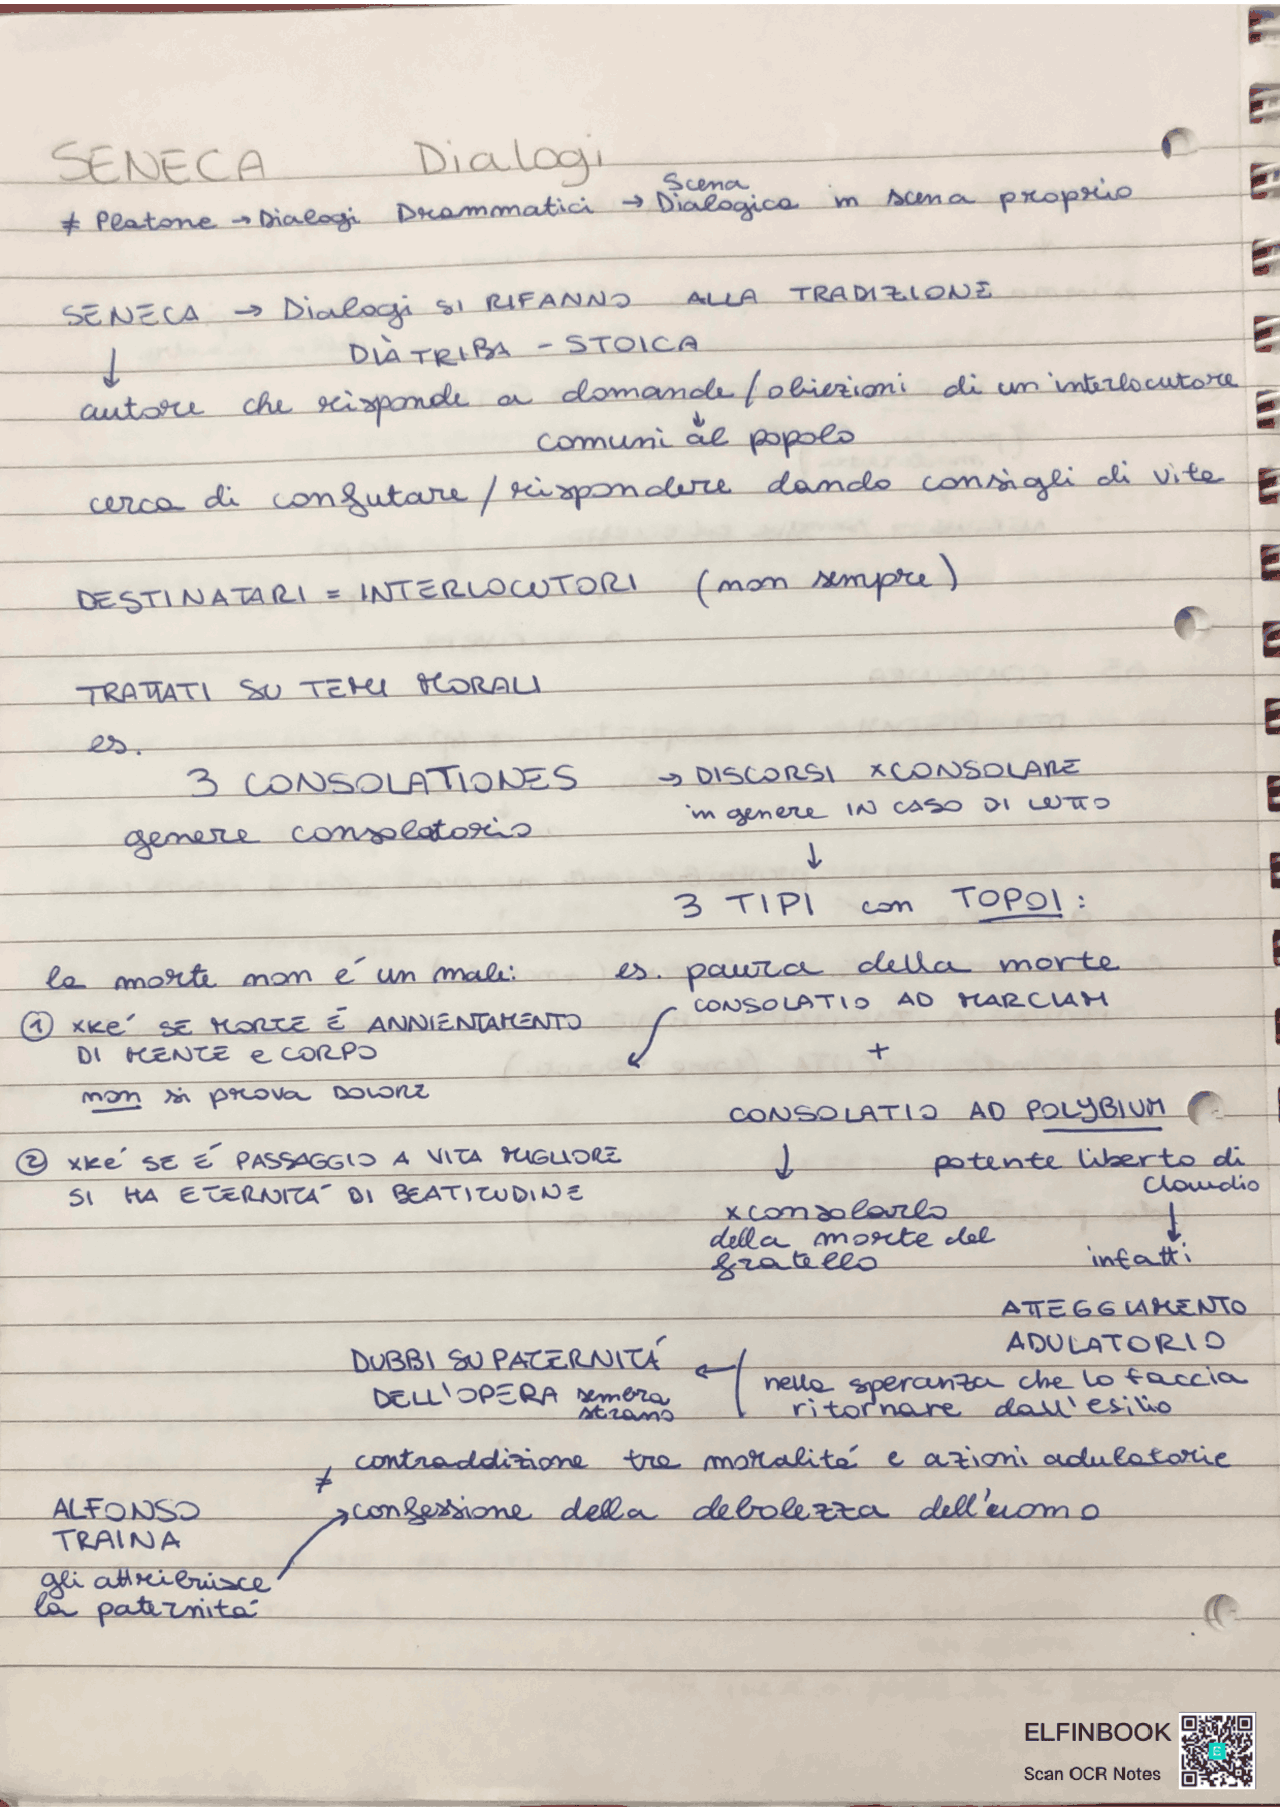 SENECA Dialogi
≠ Platone → Dialogi Drammatici → Scena Dialogica in scena proprio
SENECA → Dialogi SI RIFANNO ALLA TRADIZIONE
DIÀTRIBA - STOICA
↓
autore che risponde a domande/obiezioni di un'interlocutore
↓
comuni al popolo
cerca di confutare/rispondere dando consigli di vita
DESTINATARI = INTERLOCUTORI (non sempre)
TRATTATI SU TEMI MORALI
es.
3 CONSOLATIONES → DISCORSI XCONSOLARE
genere consolatorio in genere IN CASO DI LUTTO
↓
3 TIPI con TOPOI:
la morte non é un male: es. paura della morte
① xké SE MORTE É ANNIENTAMENTO
DI MENTE e CORPO
non si prova DOLORE
CONSOLATIO AD MARCIAM
+
CONSOLATIO AD POLYBIUM
② xké SE É PASSAGGIO A VITA MIGLIORE
SI HA ETERNITÁ DI BEATITUDINE
↓ potente liberto di
Claudio
xconsolarlo
della morte del
fratello
↓
infatti
ATTEGGIAMENTO
ADULATORIO
nella speranza che lo faccia
ritornare dall'esilio
←
DUBBI SU PATERNITÁ
DELL'OPERA sembra
strano
contraddizione tra moralitá e azioni adulatorie
≠
→ confessione della debolezza dell'uomo
ALFONSO
TRAINA
gli attribuisce
la paternitá
ELFINBOOK
Scan OCR Notes